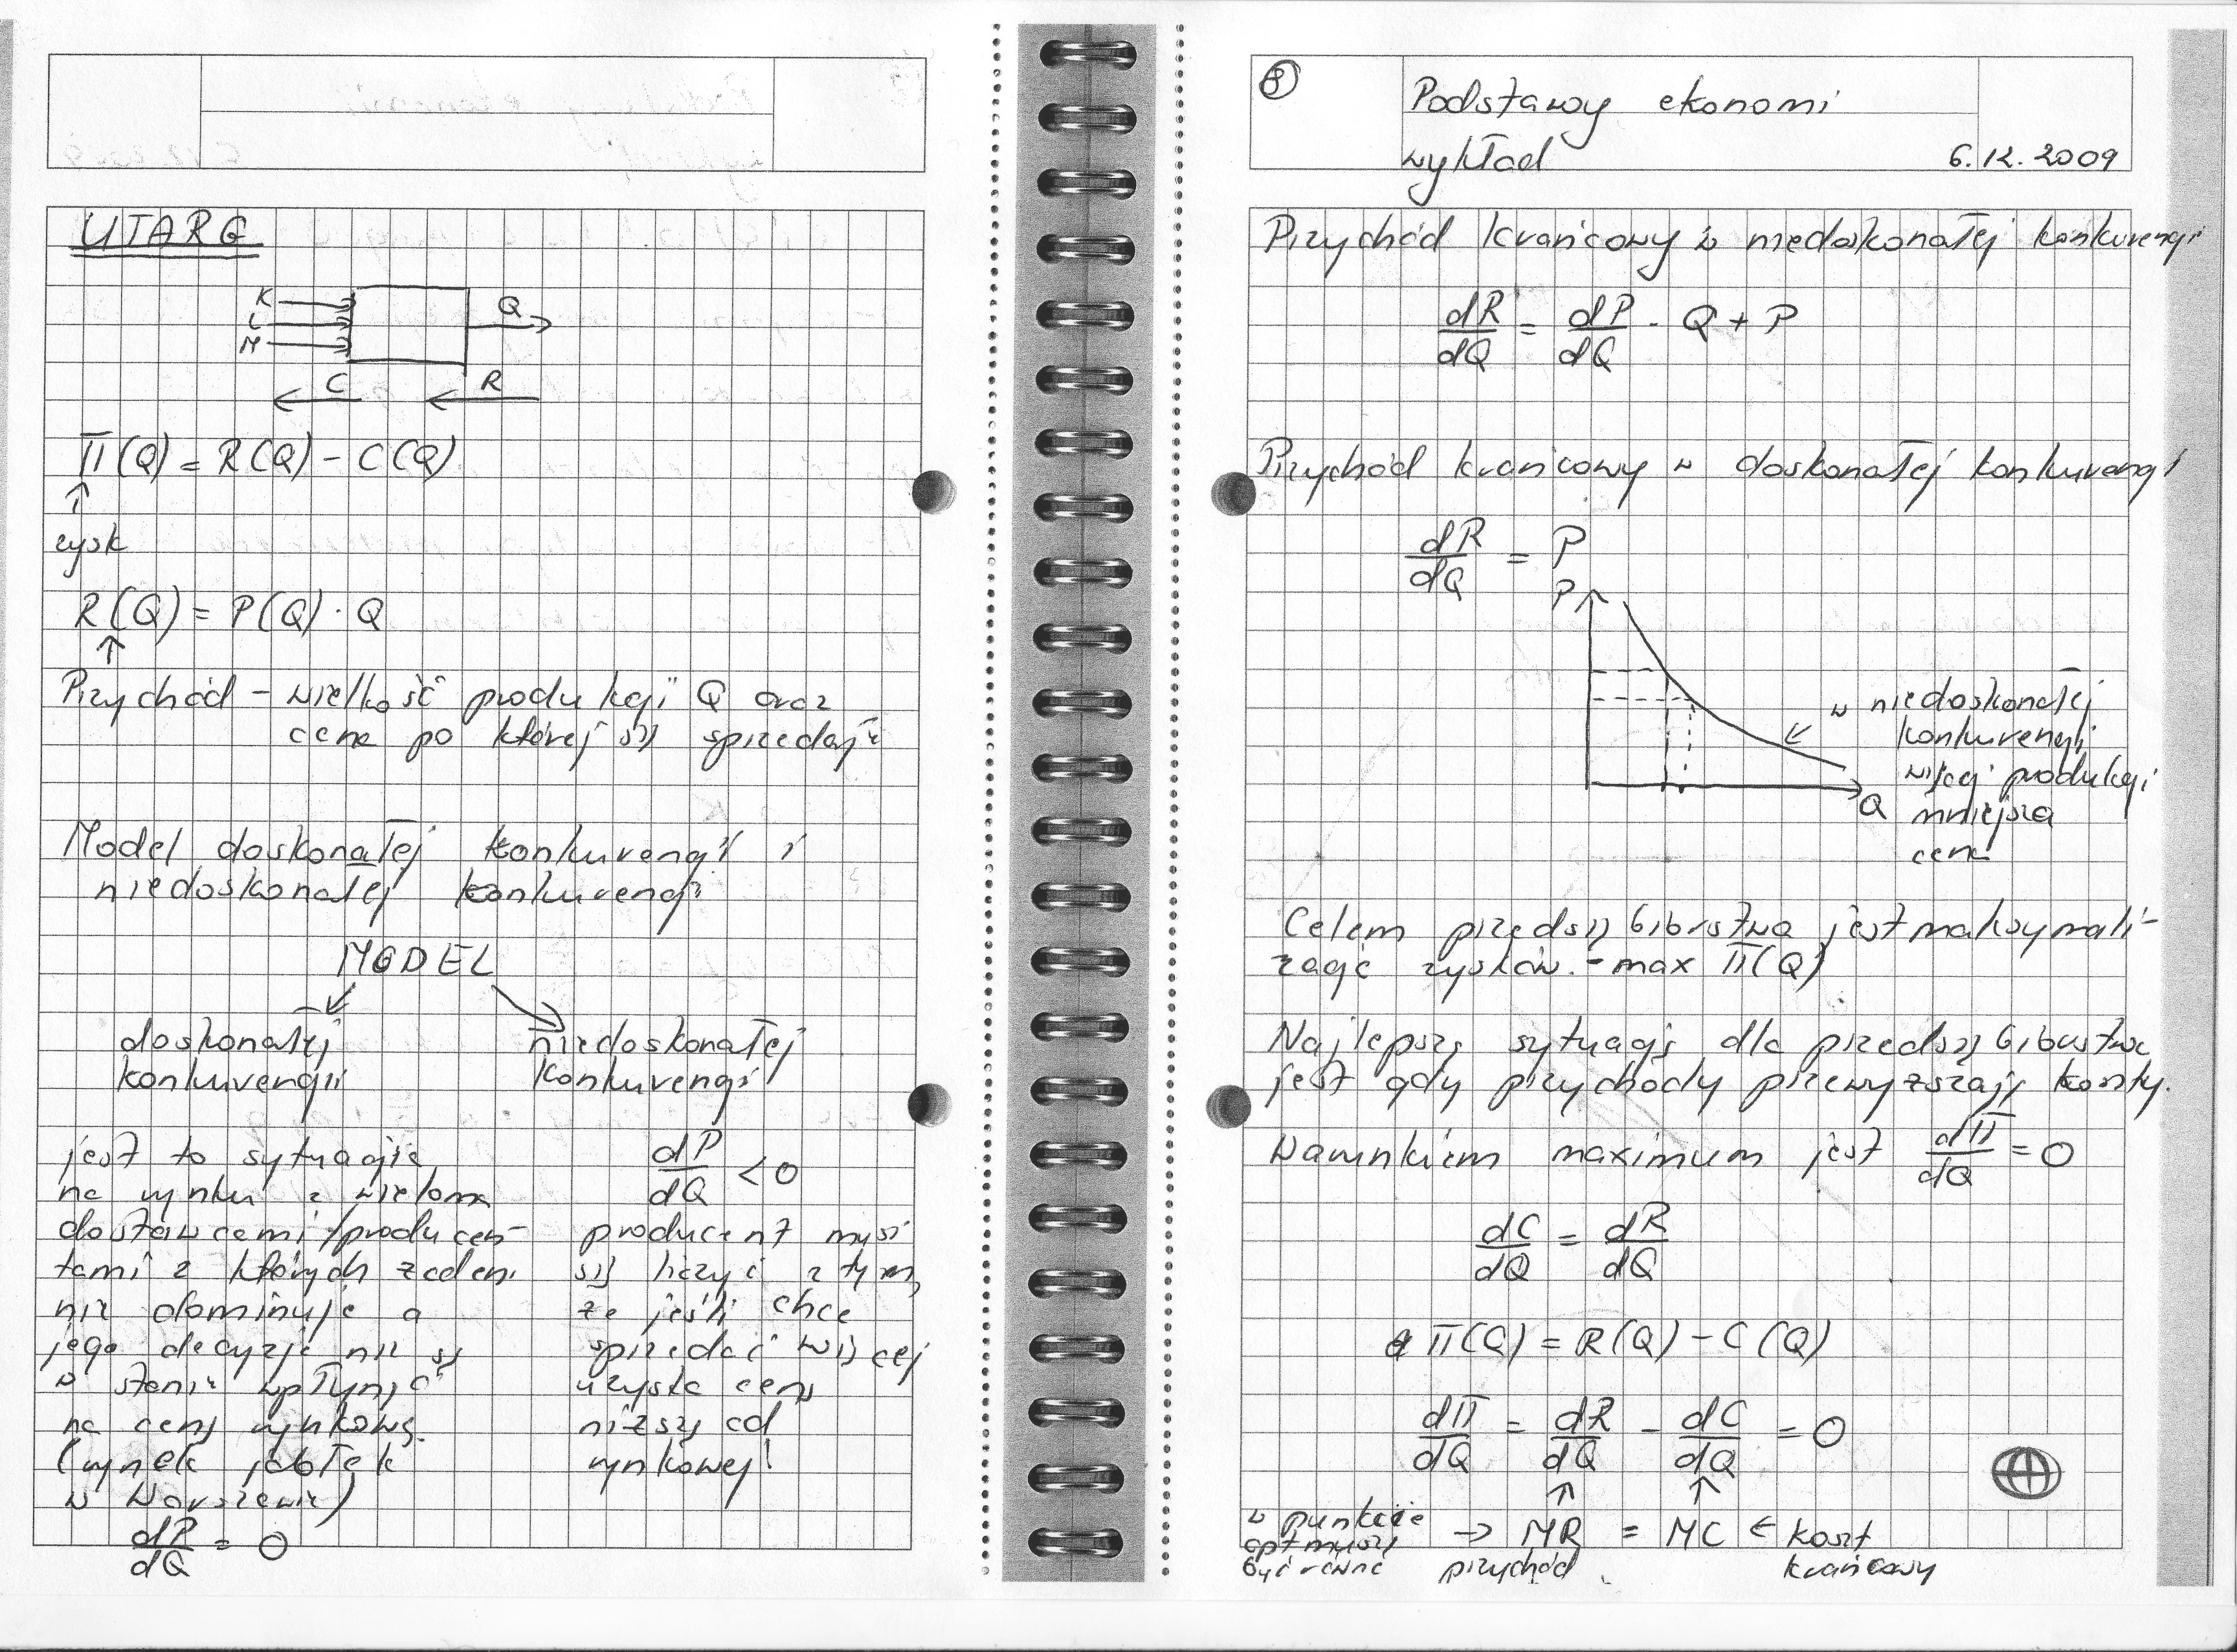 UTARG
K
L
M
Q
C
R
Π(Q) = R(Q) - C(Q)
↑
zysk
R(Q) = P(Q) · Q
↑
Przychód - wielkość produkcji Q oraz
cena po której się sprzedaje
Model doskonałej konkurencji i
niedoskonałej konkurencji
MODEL
doskonałej
konkurencji
jest to sytuacja
na rynku z wieloma
dostawcami/producen-
tami z których żaden
nie dominuje a
jego decyzje nie są
w stanie wpłynąć
na cenę rynkową.
(rynek jabłek
w Warszawie)
dP/dQ = 0
niedoskonałej
konkurencji
dP/dQ < 0
producent musi
się liczyć z tym,
że jeśli chce
sprzedać więcej
uzyska cenę
niższą od
rynkowej!
8
Podstawy ekonomi
wykład 6.12.2009
Przychód krańcowy w niedoskonałej konkurencji
dR/dQ = dP/dQ · Q + P
Przychód krańcowy w doskonałej konkurencji
dR/dQ = P
P
Q
w niedoskonałej
konkurencji
więcej produkcji
mniejsza
cena
Celem przedsiębiorstwa jest maksymali-
zacja zysków. - max Π(Q)
Najlepszą sytuacją dla przedsiębiorstwa
jest gdy przychody przewyższają koszty.
Warunkiem maximum jest dΠ/dQ = 0
dC/dQ = dR/dQ
Π(Q) = R(Q) - C(Q)
dΠ/dQ = dR/dQ - dC/dQ = 0
↑ ↑
w punkcie
opt muszą
być równe
→ MR = MC ← koszt
przychód krańcowy